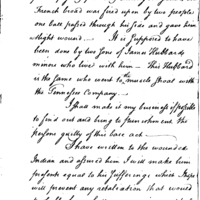 French broad was fired upon by two people
one ball passed through his side and gave him
slight wound. It is supposed to have
been done by two sons of Hubbards
minors who live with him — This Hubbard
is the same who went to the muscle shoal with
the Tennessee Company.
I shall make it my business if possible
to find out and bring to punishment the
persons guilty of this base act
I have written to the wounded
Indian and assured him I will make him
presents equal to his sufferings which I hope
will prevent any retaliation that